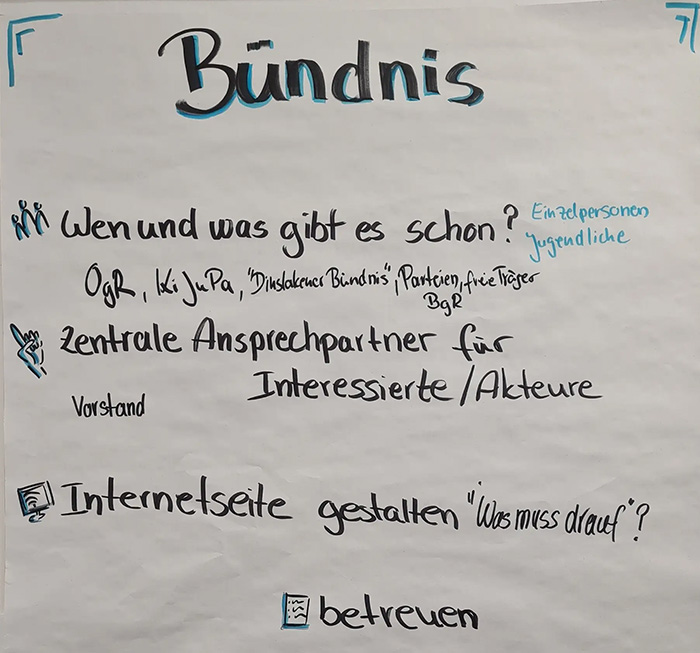 Bündnis
Wen und was gibt es schon?
Einzelpersonen
Jugendliche
OgR, KiJuPa, "Dinslakener Bündnis", Parteien, freie Träger
BgR
Zentrale Ansprechpartner für
Interessierte/Akteure
Vorstand
Internetseite gestalten "Was muss drauf"?
betreuen